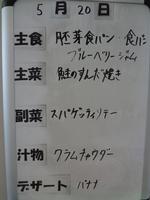 5月20日
主食 胚芽食パン・食パン
ブルーベリージャム
主菜 鮭のずんだ焼き
副菜 スパゲッティソテー
汁物 クラムチャウダー
デザート バナナ